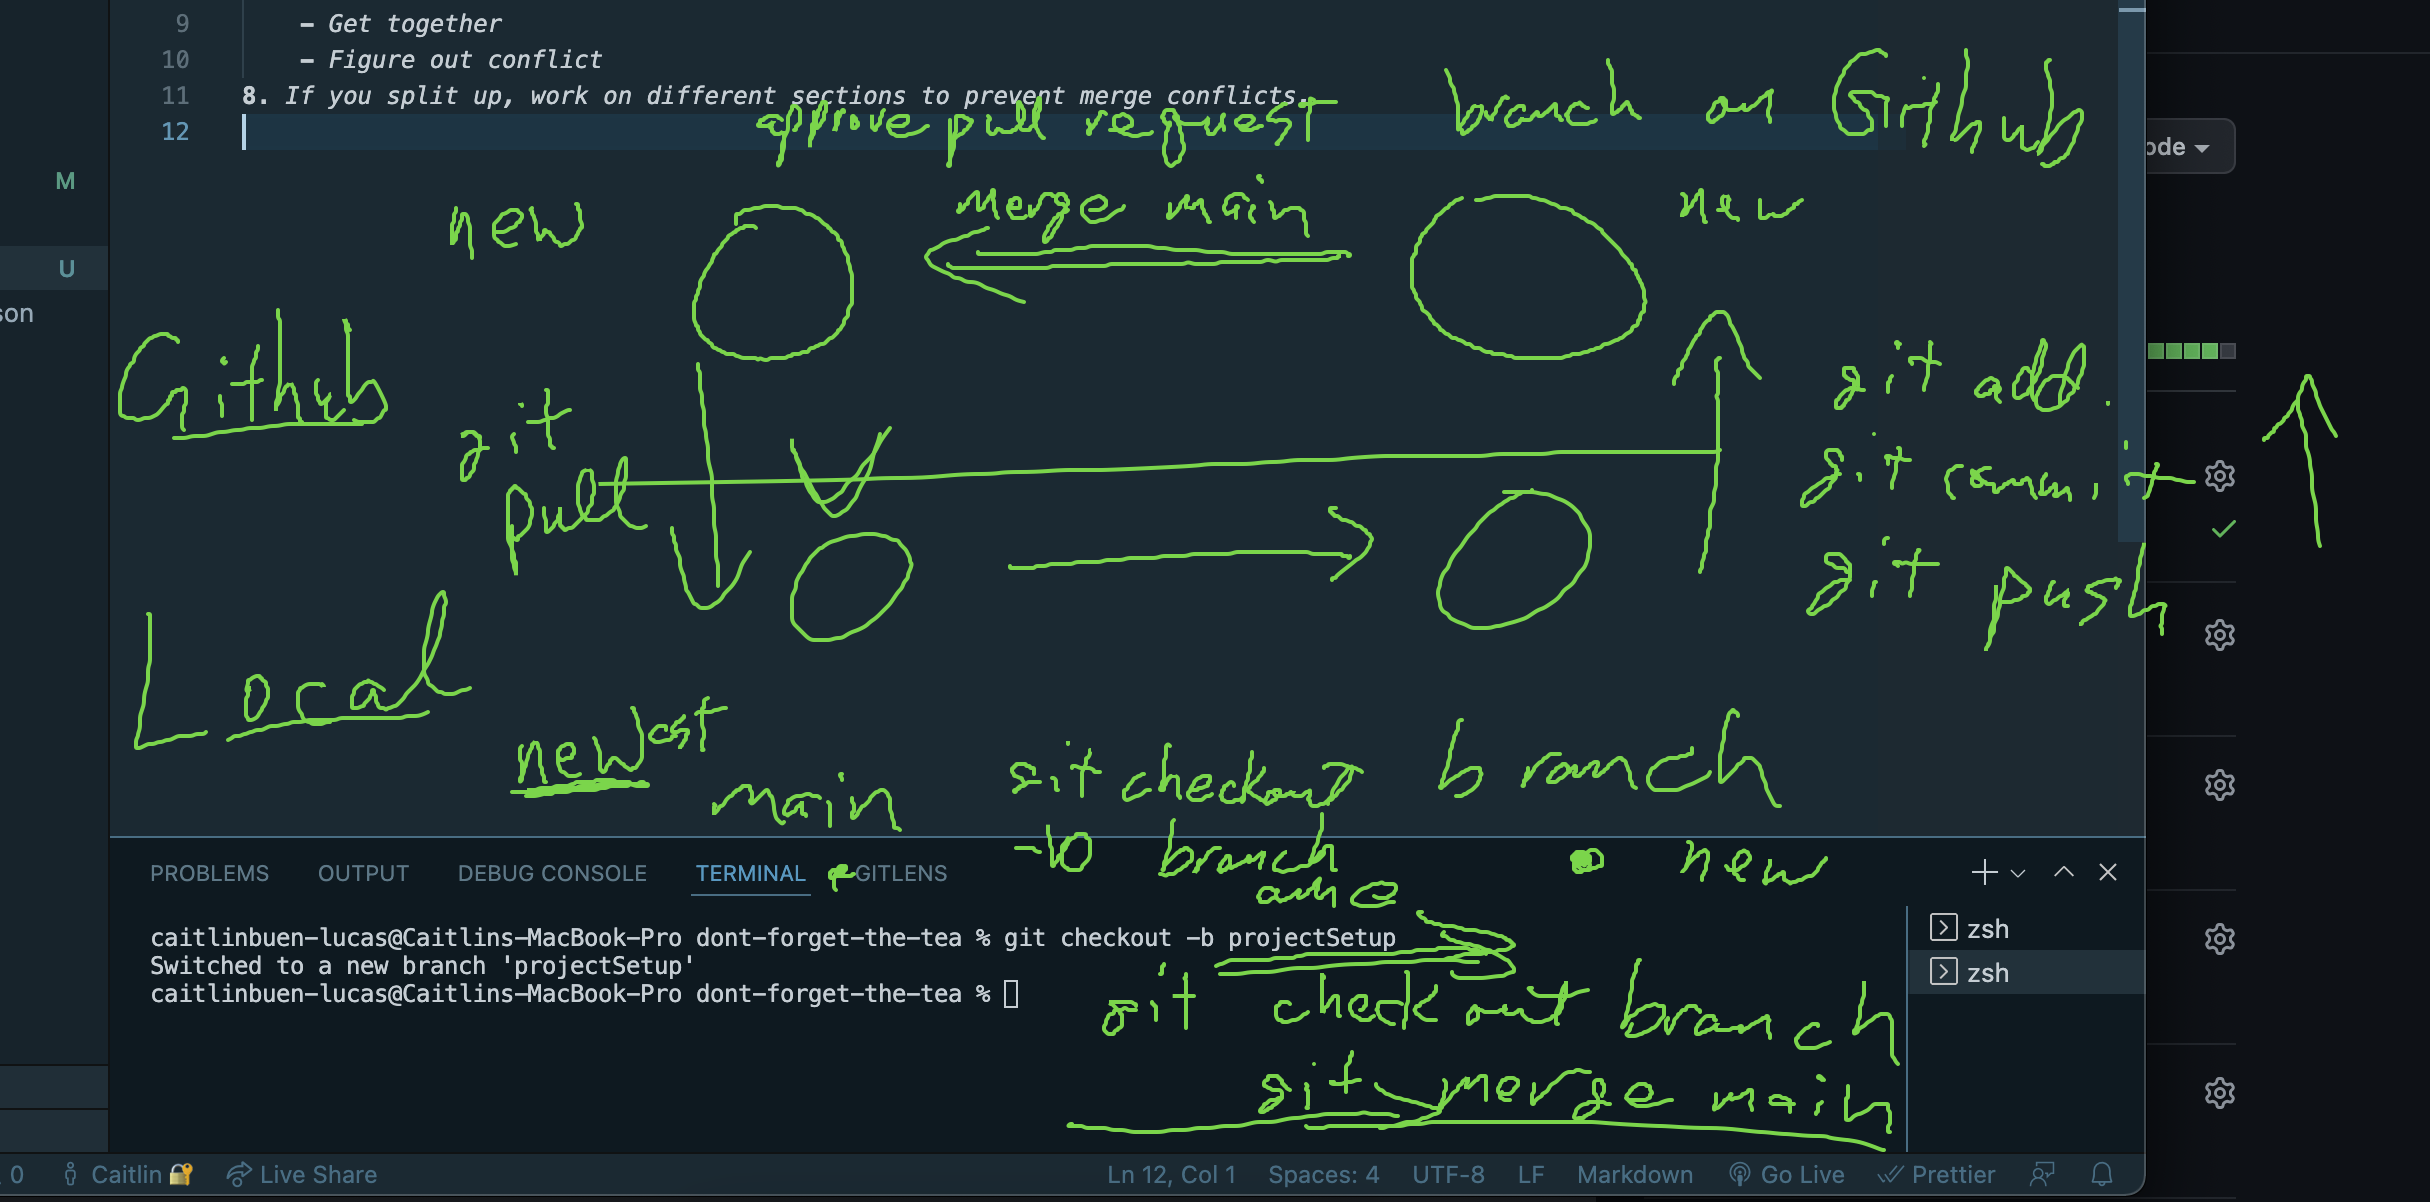 9 – Get together
10 – Figure out conflict
11 8. If you split up, work on different sections to prevent merge conflicts.
12
approve pull request
branch on Github
ode
M
new
merge main
new
U
son
Github
git pull
git add .
git commit
git push
Local
newest
main
git checkout
-b branch
name
branch
new
PROBLEMS OUTPUT DEBUG CONSOLE TERMINAL GITLENS
caitlinbuen-lucas@Caitlins-MacBook-Pro dont-forget-the-tea % git checkout -b projectSetup
Switched to a new branch 'projectSetup'
caitlinbuen-lucas@Caitlins-MacBook-Pro dont-forget-the-tea %
zsh
zsh
git checkout branch
git merge main
0 Caitlin Live Share Ln 12, Col 1 Spaces: 4 UTF-8 LF Markdown Go Live Prettier